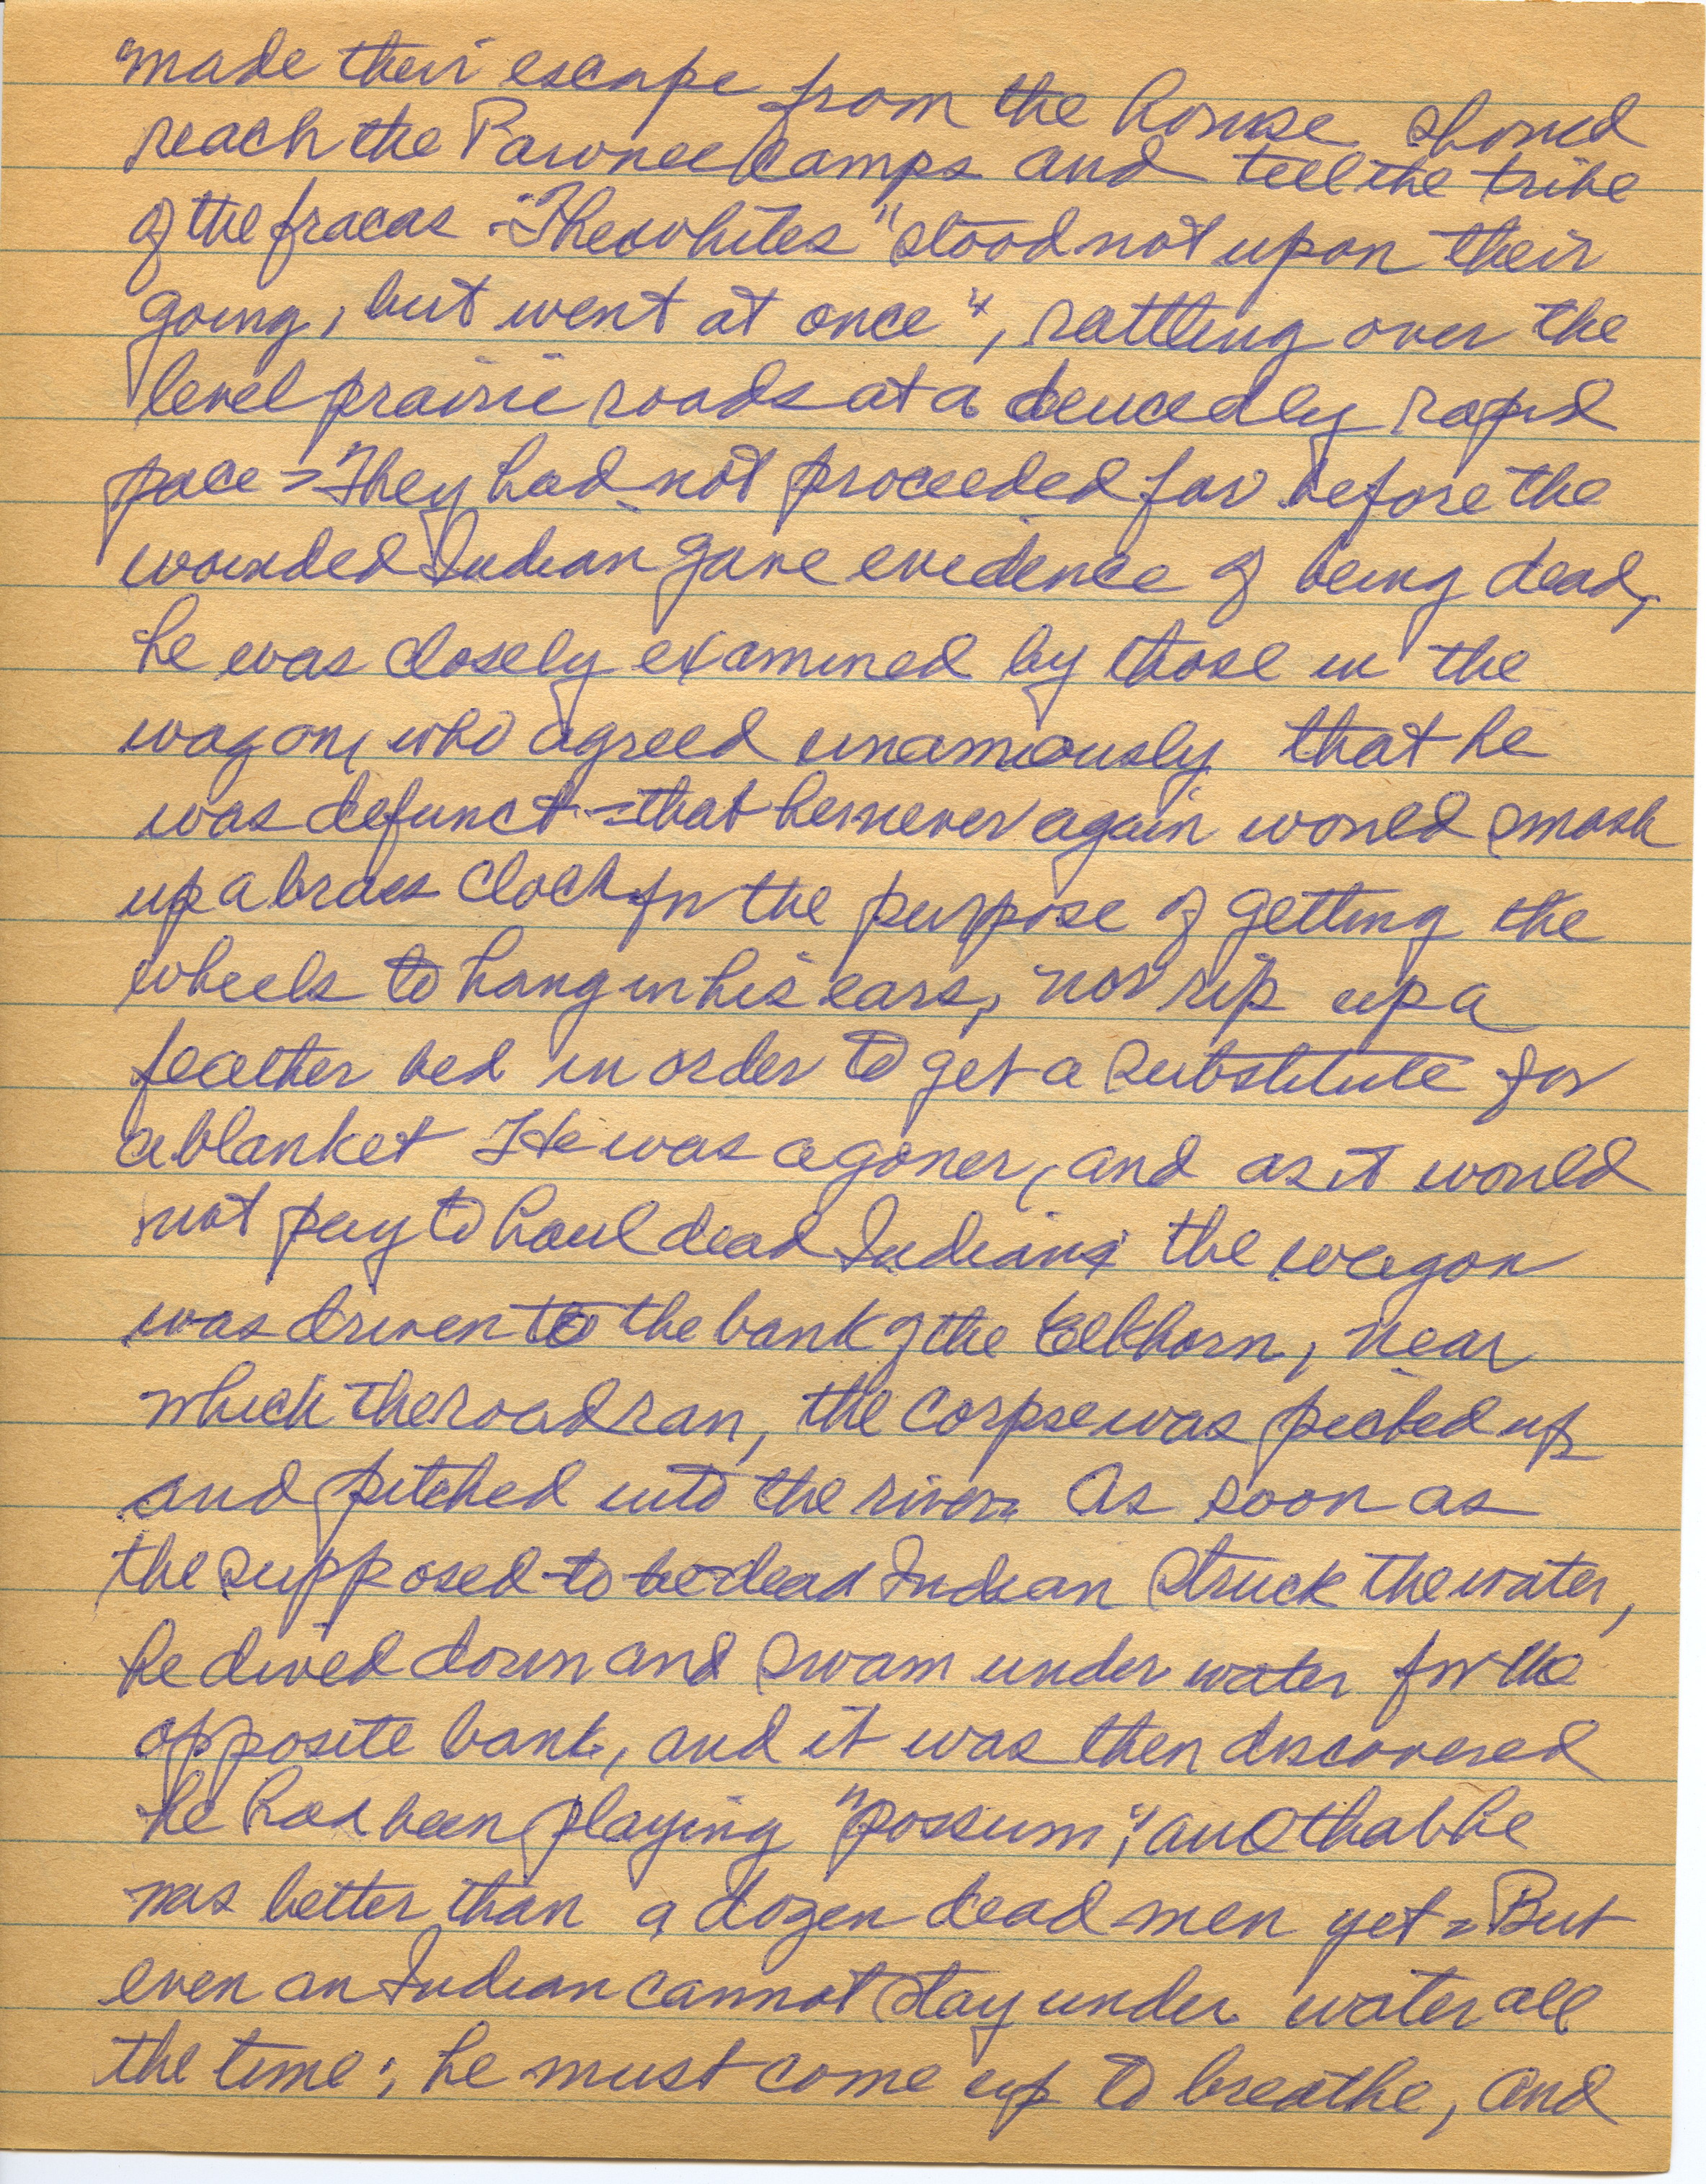 made their escape from the house shoued
reach the Pawnee Camps and tell the tribe
of the fracas - The whites "stood not upon their
going, but went at once", rattling over the
level prairie roads at a deucedly rapid
pace - They had not proceeded far before the
wounded Indian gave evidence of being dead,
he was closely examined by those in the
wagon, who agreed unamiously that he
was defunct - that he never again would smash
up a brass clock for the purpose of getting the
wheels to hang in his ears, nor rip up a
feather bed in order to get a substitute for
a blanket He was a goner, and as it would
not pay to haul dead Indians the wagon
was driven to the bank of the Elkhorn, near
which the road ran, the corpse was picked up
and pitched into the river. As soon as
the supposed to be dead Indian struck the water,
he dived down and swam under water for the
opposite bank, and it was then discovered
he had been playing "possum", and that he
was better than a dozen dead men yet - But
even an Indian cannot stay under water all
the time; he must come up to breathe, and